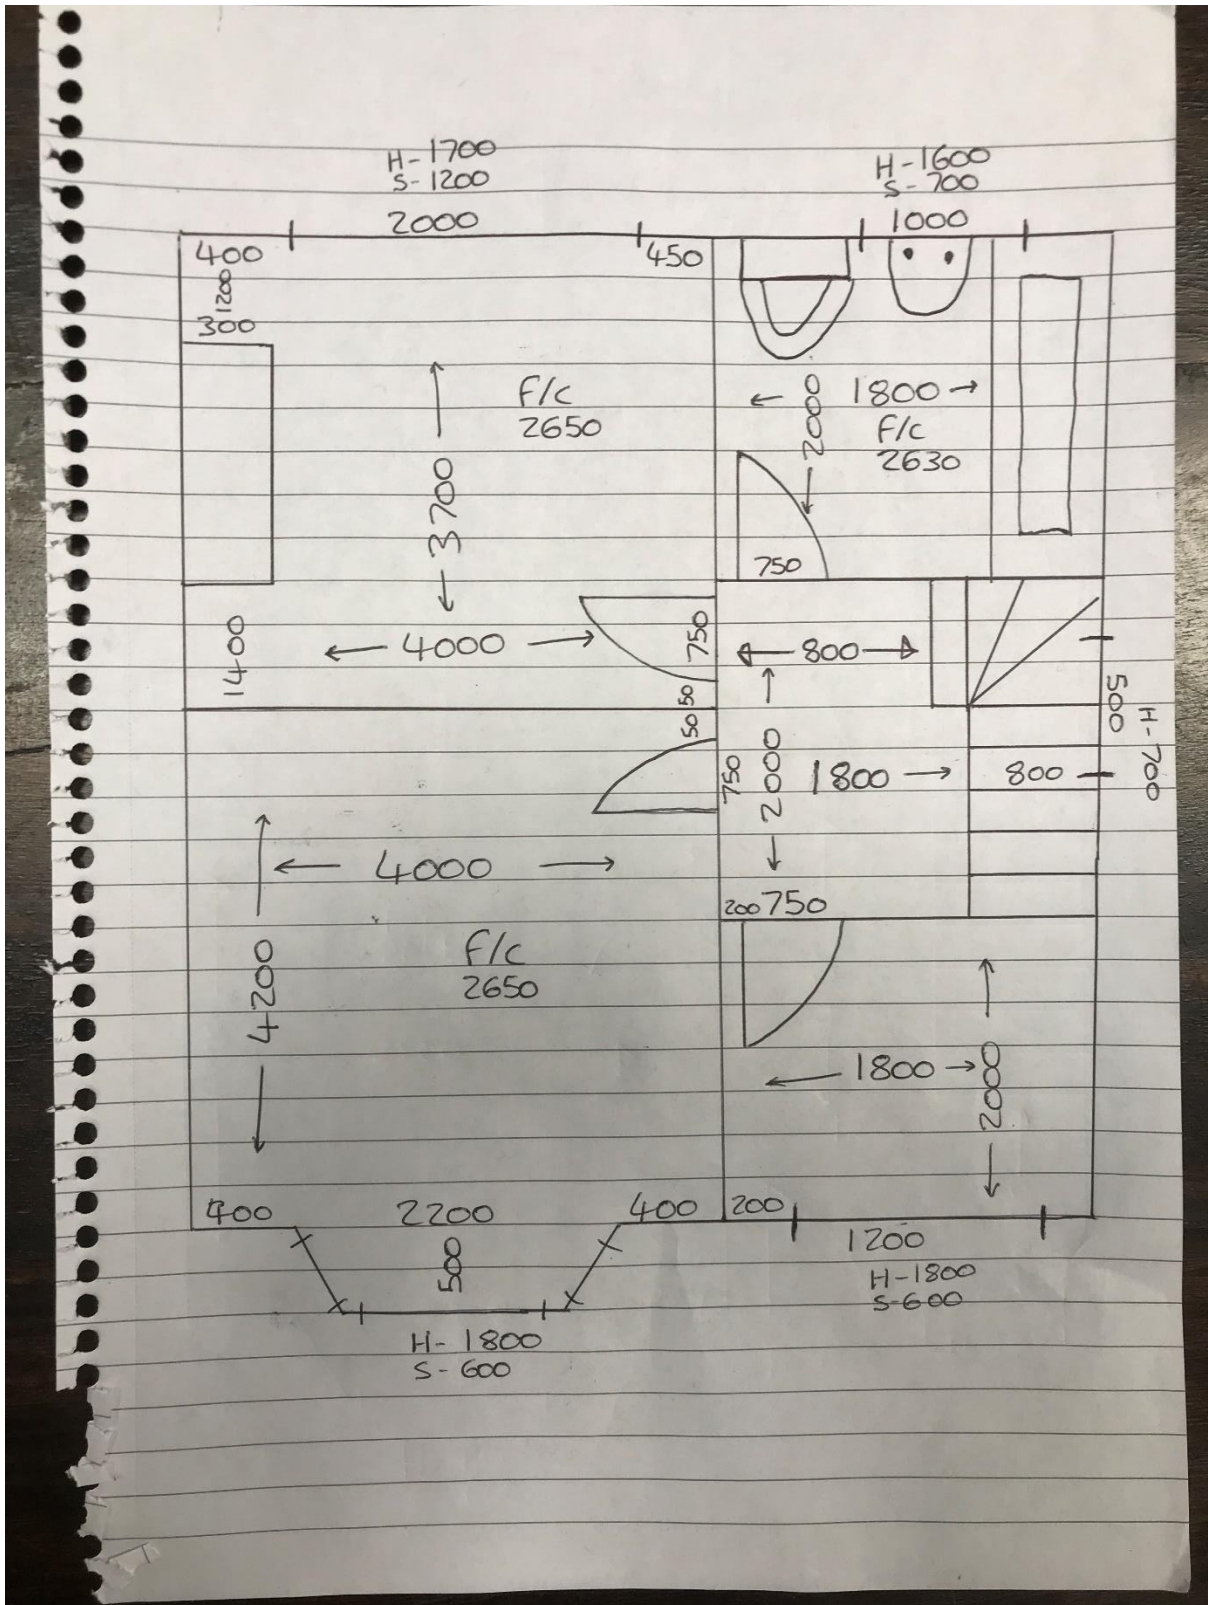 H-1700
S-1200
2000
H-1600
S-700
1000
400
1200
300
450
F/C
2650
3700
1800
2000
F/C
2630
750
1400
4000
750
800
50
50
500
H-700
750
2000
1800
800
4000
200 750
4200
F/C
2650
1800
2000
400
2200
400
200
500
1200
H-1800
S-600
H-1800
S-600